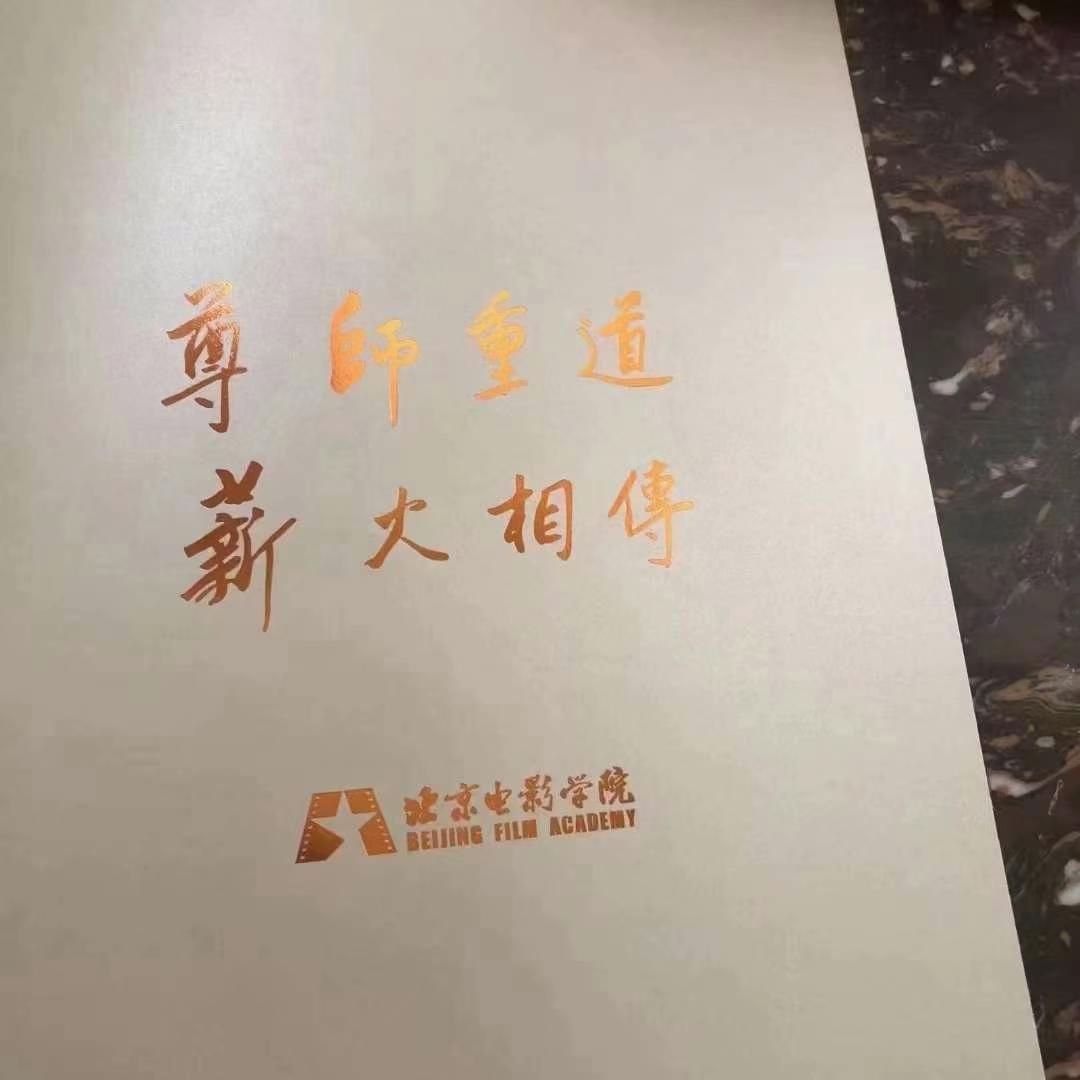 尊師重道
薪火相傳
北京电影学院
BEIJING FILM ACADEMY